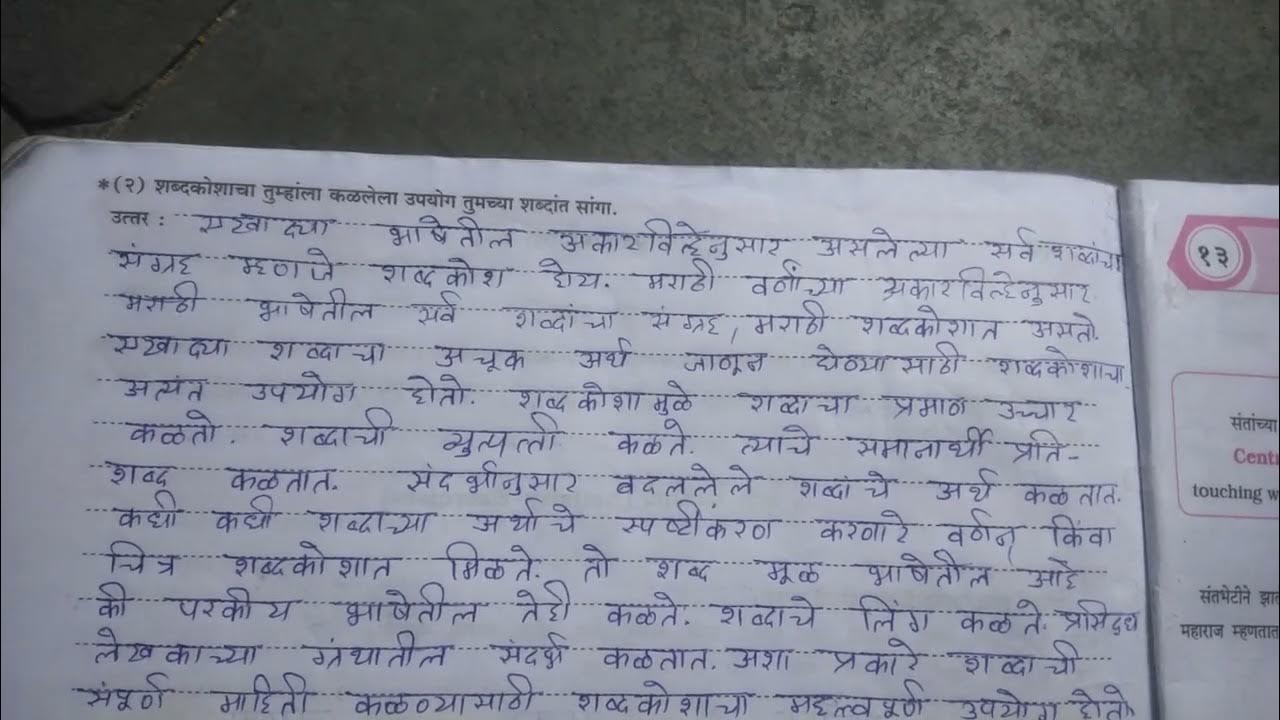 *(२) शब्दकोशाचा तुम्हांला कळलेला उपयोग तुमच्या शब्दांत सांगा.
उत्तर : एखाद्या भाषेतील अकारविल्हेनुसार असलेल्या सर्व शब्दांचा
संग्रह म्हणजे शब्दकोश होय. मराठी वर्णांच्या अकारविल्हेनुसार
मराठी भाषेतील सर्व शब्दांचा संग्रह, मराठी शब्दकोशात असतो.
एखाद्या शब्दाचा अचूक अर्थ जाणून घेण्यासाठी शब्दकोशाचा
अत्यंत उपयोग होतो. शब्दकोशामुळे शब्दाचा प्रमाण उच्चार
कळतो. शब्दाची व्युत्पत्ती कळते. त्याचे समानार्थी प्रति-
शब्द कळतात. संदर्भानुसार बदललेले शब्दांचे अर्थ कळतात.
कधी कधी शब्दाच्या अर्थाचे स्पष्टीकरण करणारे वर्णन किंवा
चित्र शब्दकोशात मिळते. तो शब्द मूळ भाषेतील आहे
की परकीय भाषेतील तेही कळते. शब्दाचे लिंग कळते. प्रसिद्ध
लेखकाच्या ग्रंथातील संदर्भ कळतात. अशा प्रकारे शब्दाची
संपूर्ण माहिती कळण्यासाठी शब्दकोशाचा महत्त्वपूर्ण उपयोग होतो
१३
संतांच्या
Cent
touching w
संतभेटीने झा
महाराज म्हणतात